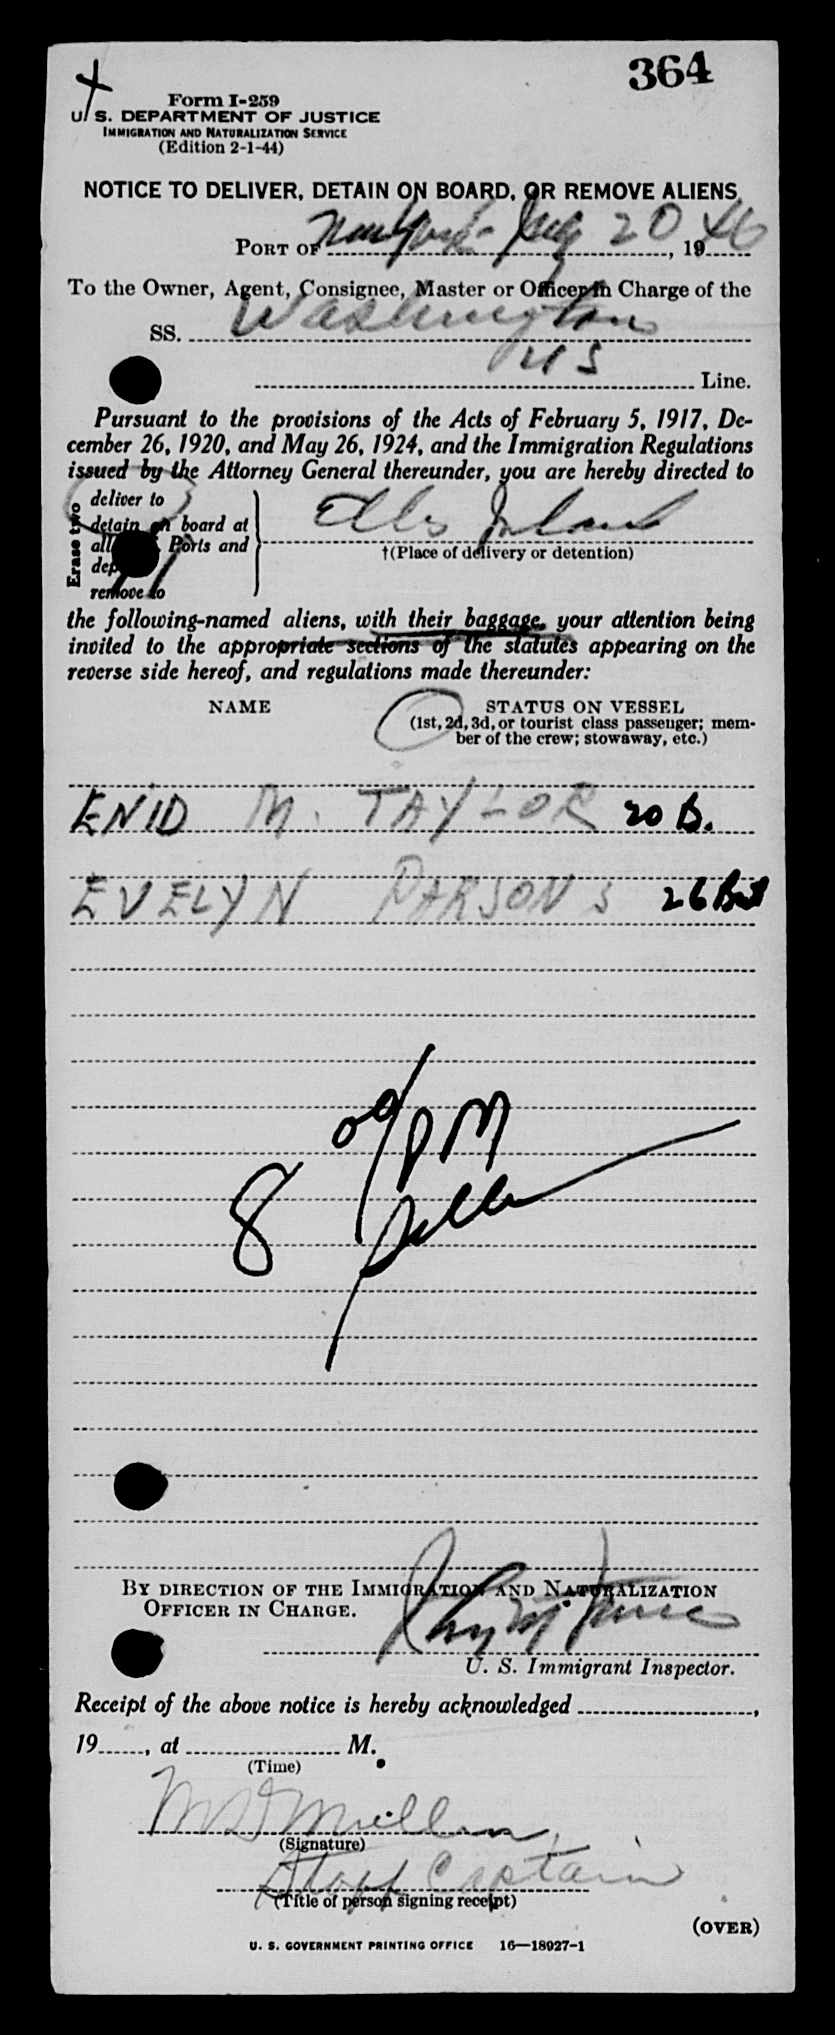 364
Form I-259
U. S. DEPARTMENT OF JUSTICE
IMMIGRATION AND NATURALIZATION SERVICE
(Edition 2-1-44)
NOTICE TO DELIVER, DETAIN ON BOARD, OR REMOVE ALIENS
PORT OF New York - 20, 1946
To the Owner, Agent, Consignee, Master or Officer in Charge of the
SS. Washington
U S Line.
Pursuant to the provisions of the Acts of February 5, 1917, De-
cember 26, 1920, and May 26, 1924, and the Immigration Regulations
issued by the Attorney General thereunder, you are hereby directed to
Erase two
deliver to
detain on board at
all Ports and
remove to
Ellis Island
†(Place of delivery or detention)
the following-named aliens, with their baggage, your attention being
invited to the appropriate sections of the statutes appearing on the
reverse side hereof, and regulations made thereunder:
NAME STATUS ON VESSEL
(1st, 2d, 3d, or tourist class passenger; mem-
ber of the crew; stowaway, etc.)
ENID M. TAYLOR 20 B.
EVELYN PARSONS 26
8 00/PM
BY DIRECTION OF THE IMMIGRATION AND NATURALIZATION
OFFICER IN CHARGE.
U. S. Immigrant Inspector.
Receipt of the above notice is hereby acknowledged ,
19 , at M.
(Time)
(Signature)
Staff Captain
(Title of person signing receipt)
(OVER)
U. S. GOVERNMENT PRINTING OFFICE 16—18927-1